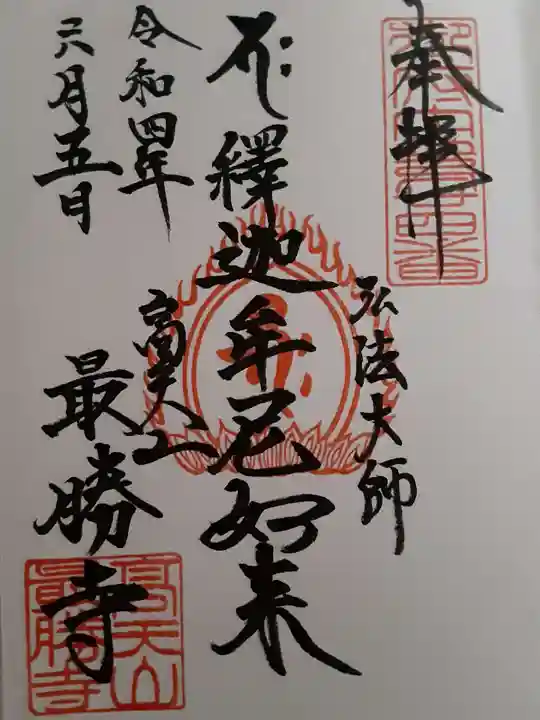 奉拝
弘法大師
釋迦牟尼如来
令和四年
六月五日
高天山
最勝寺
高天山
最勝寺